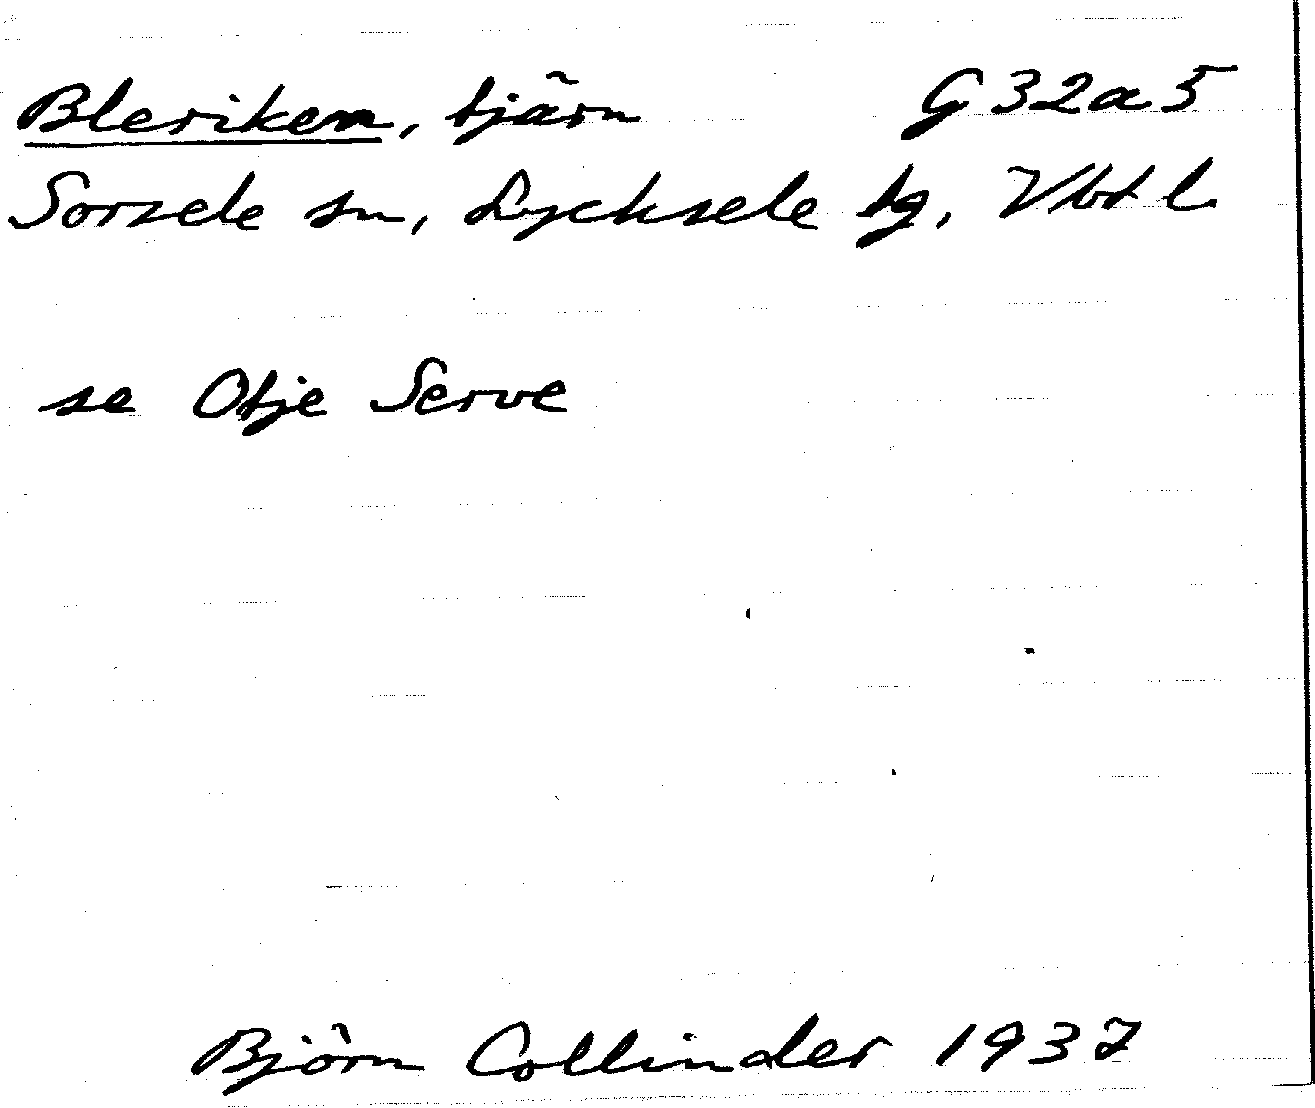 Bleriken, tjärn G32a5
Sorsele sn, Lycksele tg, Vbtl
se Otje Serve
Björn Collinder 1937